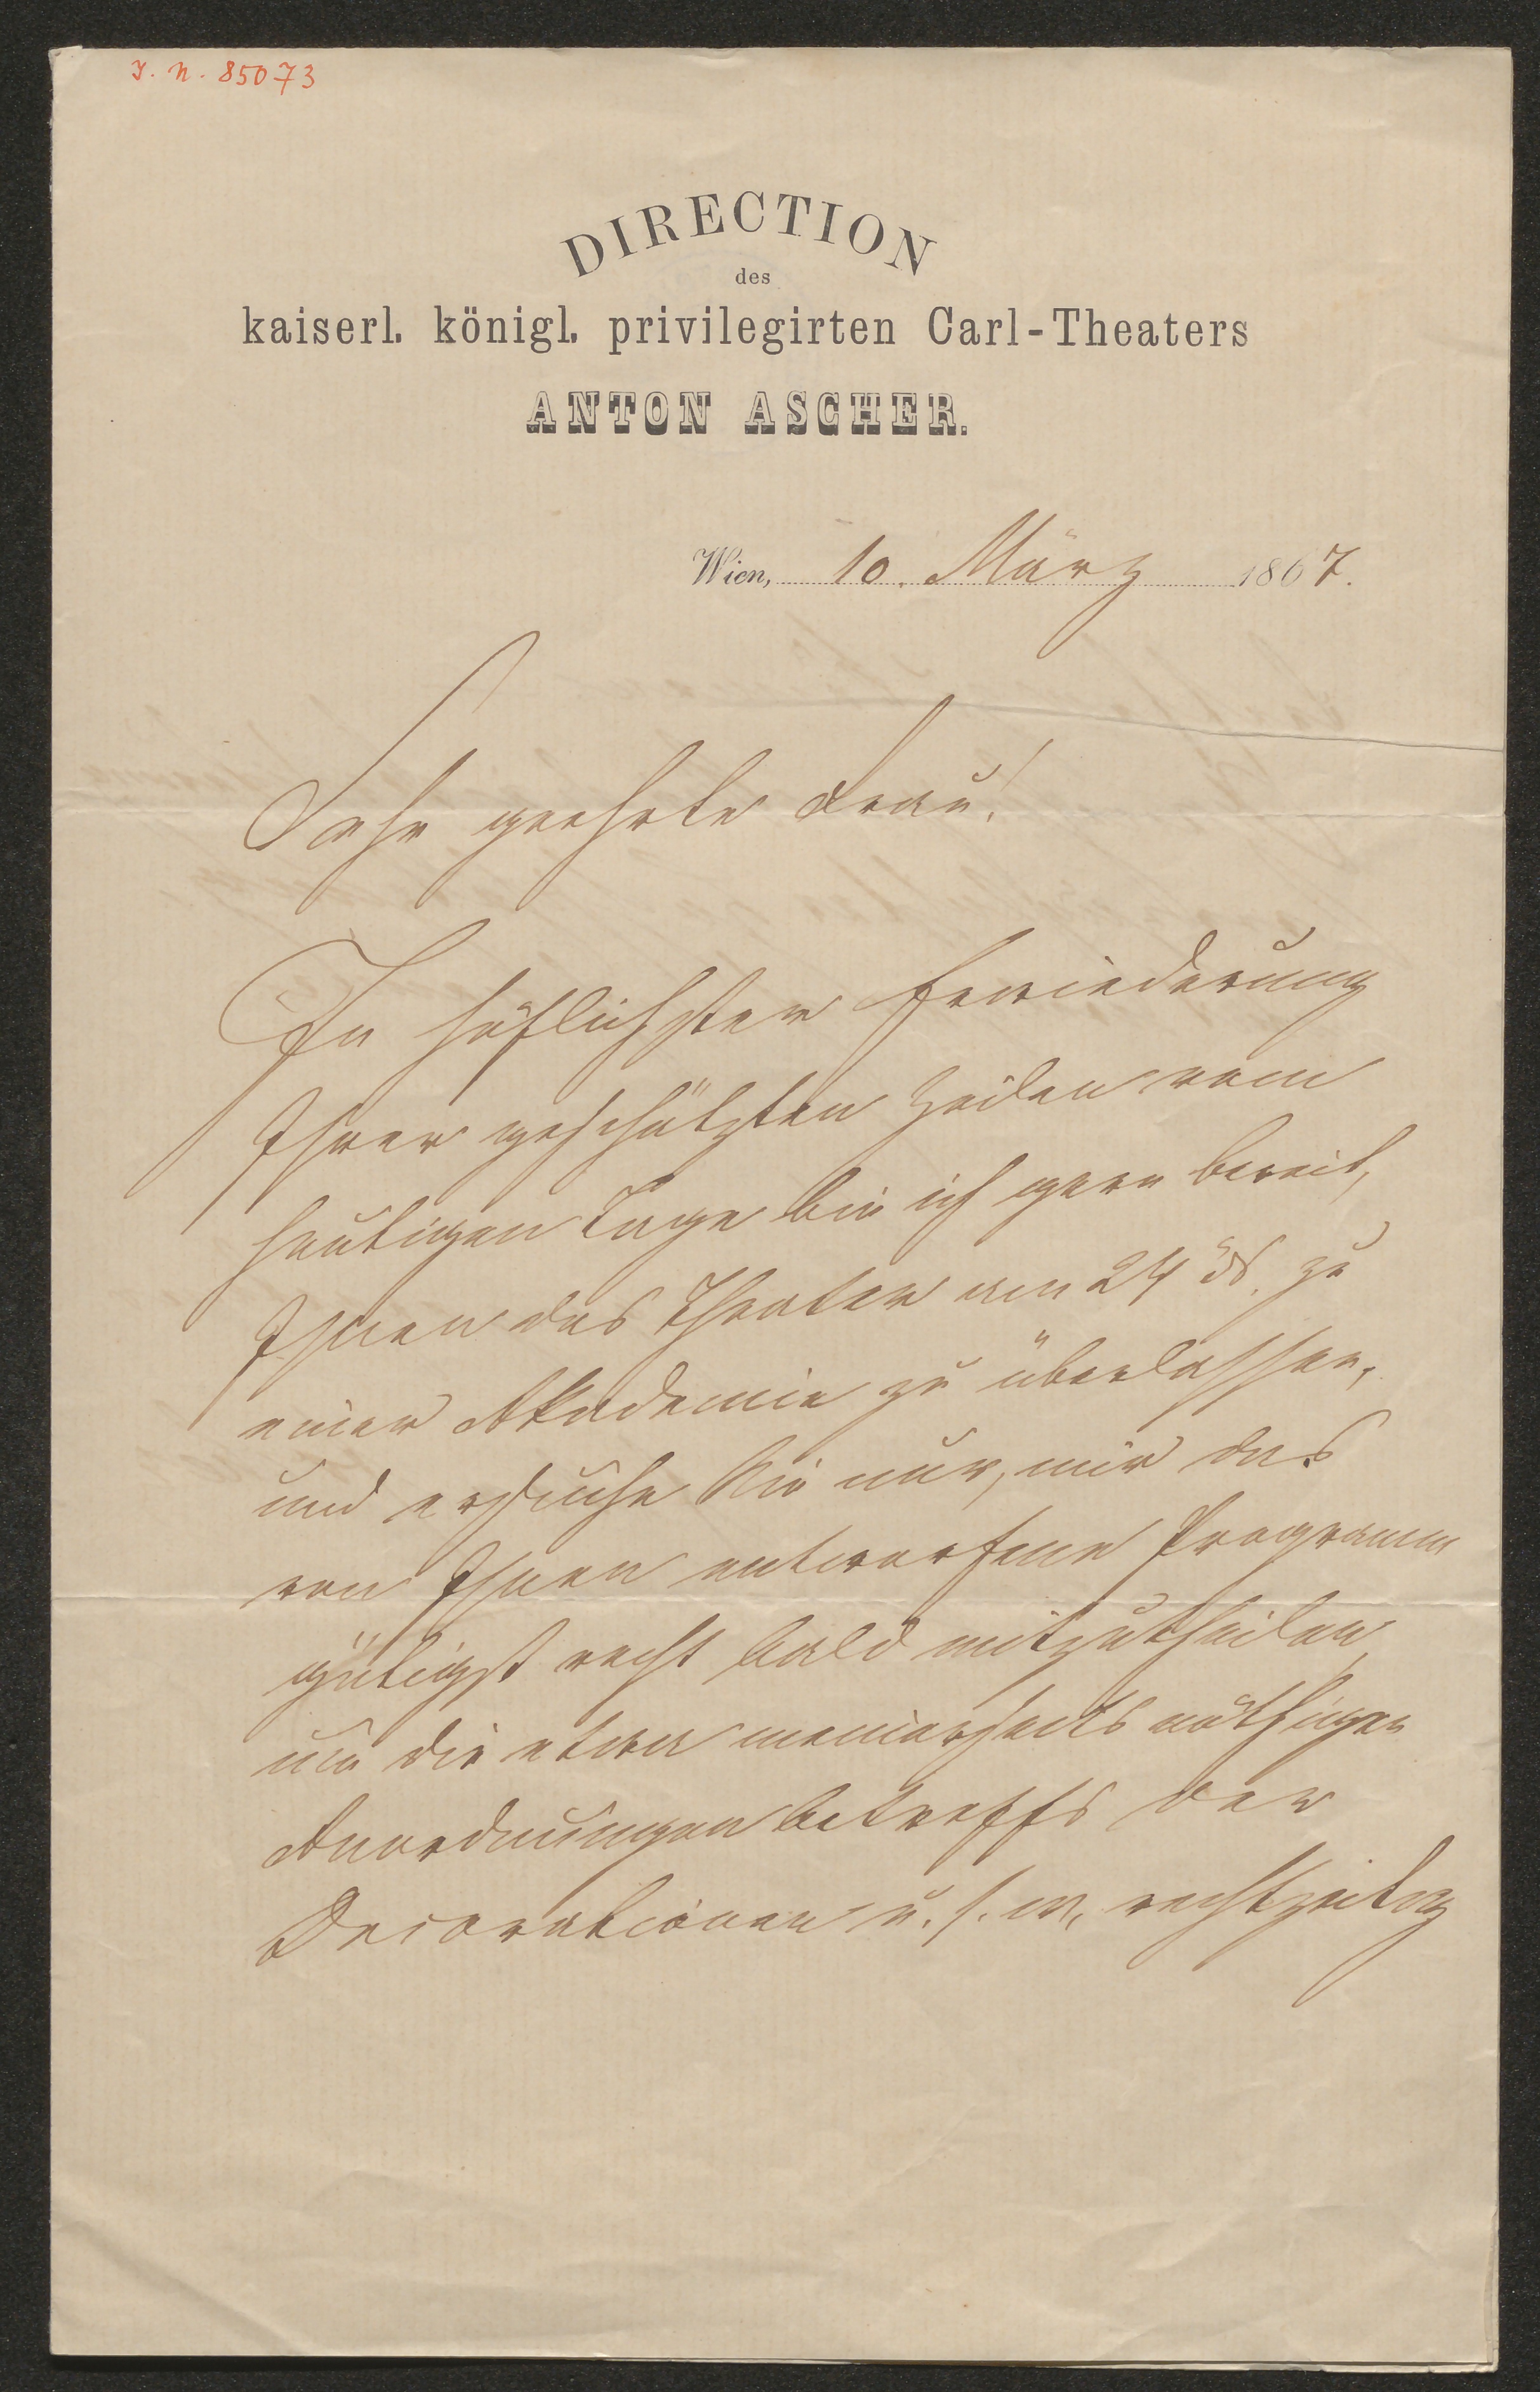 I. N. 85073
DIRECTION
des
kaiserl. königl. privilegirten Carl-Theaters
ANTON ASCHER.
Wien, 10. März 1867.
Sehr geehrte Frau!
In höflichster Erwiederung
Ihrer geschätzten Zeilen vom
heutigen Tage bin ich gern bereit,
Ihnen das Theater am 24 ds. zu
einer Akademie zu überlassen,
und ersuche Sie nur, mir das
von Ihnen entworfene Programm
gütigst recht bald mitzutheilen,
um die etwa meinerseits nöthigen
Anordnungen betreffs der
Decorationen u. s. w. rechtzeitig